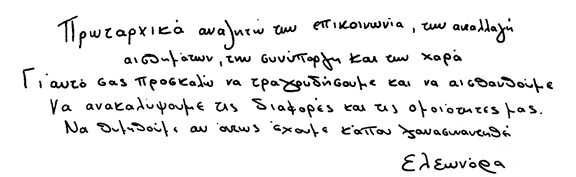 Πρωταρχικά αναζητώ την επικοινωνία, την ανταλλαγή
αισθημάτων, την συνύπαρξη και την χαρά
Γι' αυτό σας προσκαλώ να τραγουδήσουμε και να αισθανθούμε
Να ανακαλύψουμε τις διαφορές και τις ομοιότητές μας.
Να θυμηθούμε αν όπως έχουμε κάπου ξανασυναντηθεί
Ελεωνόρα